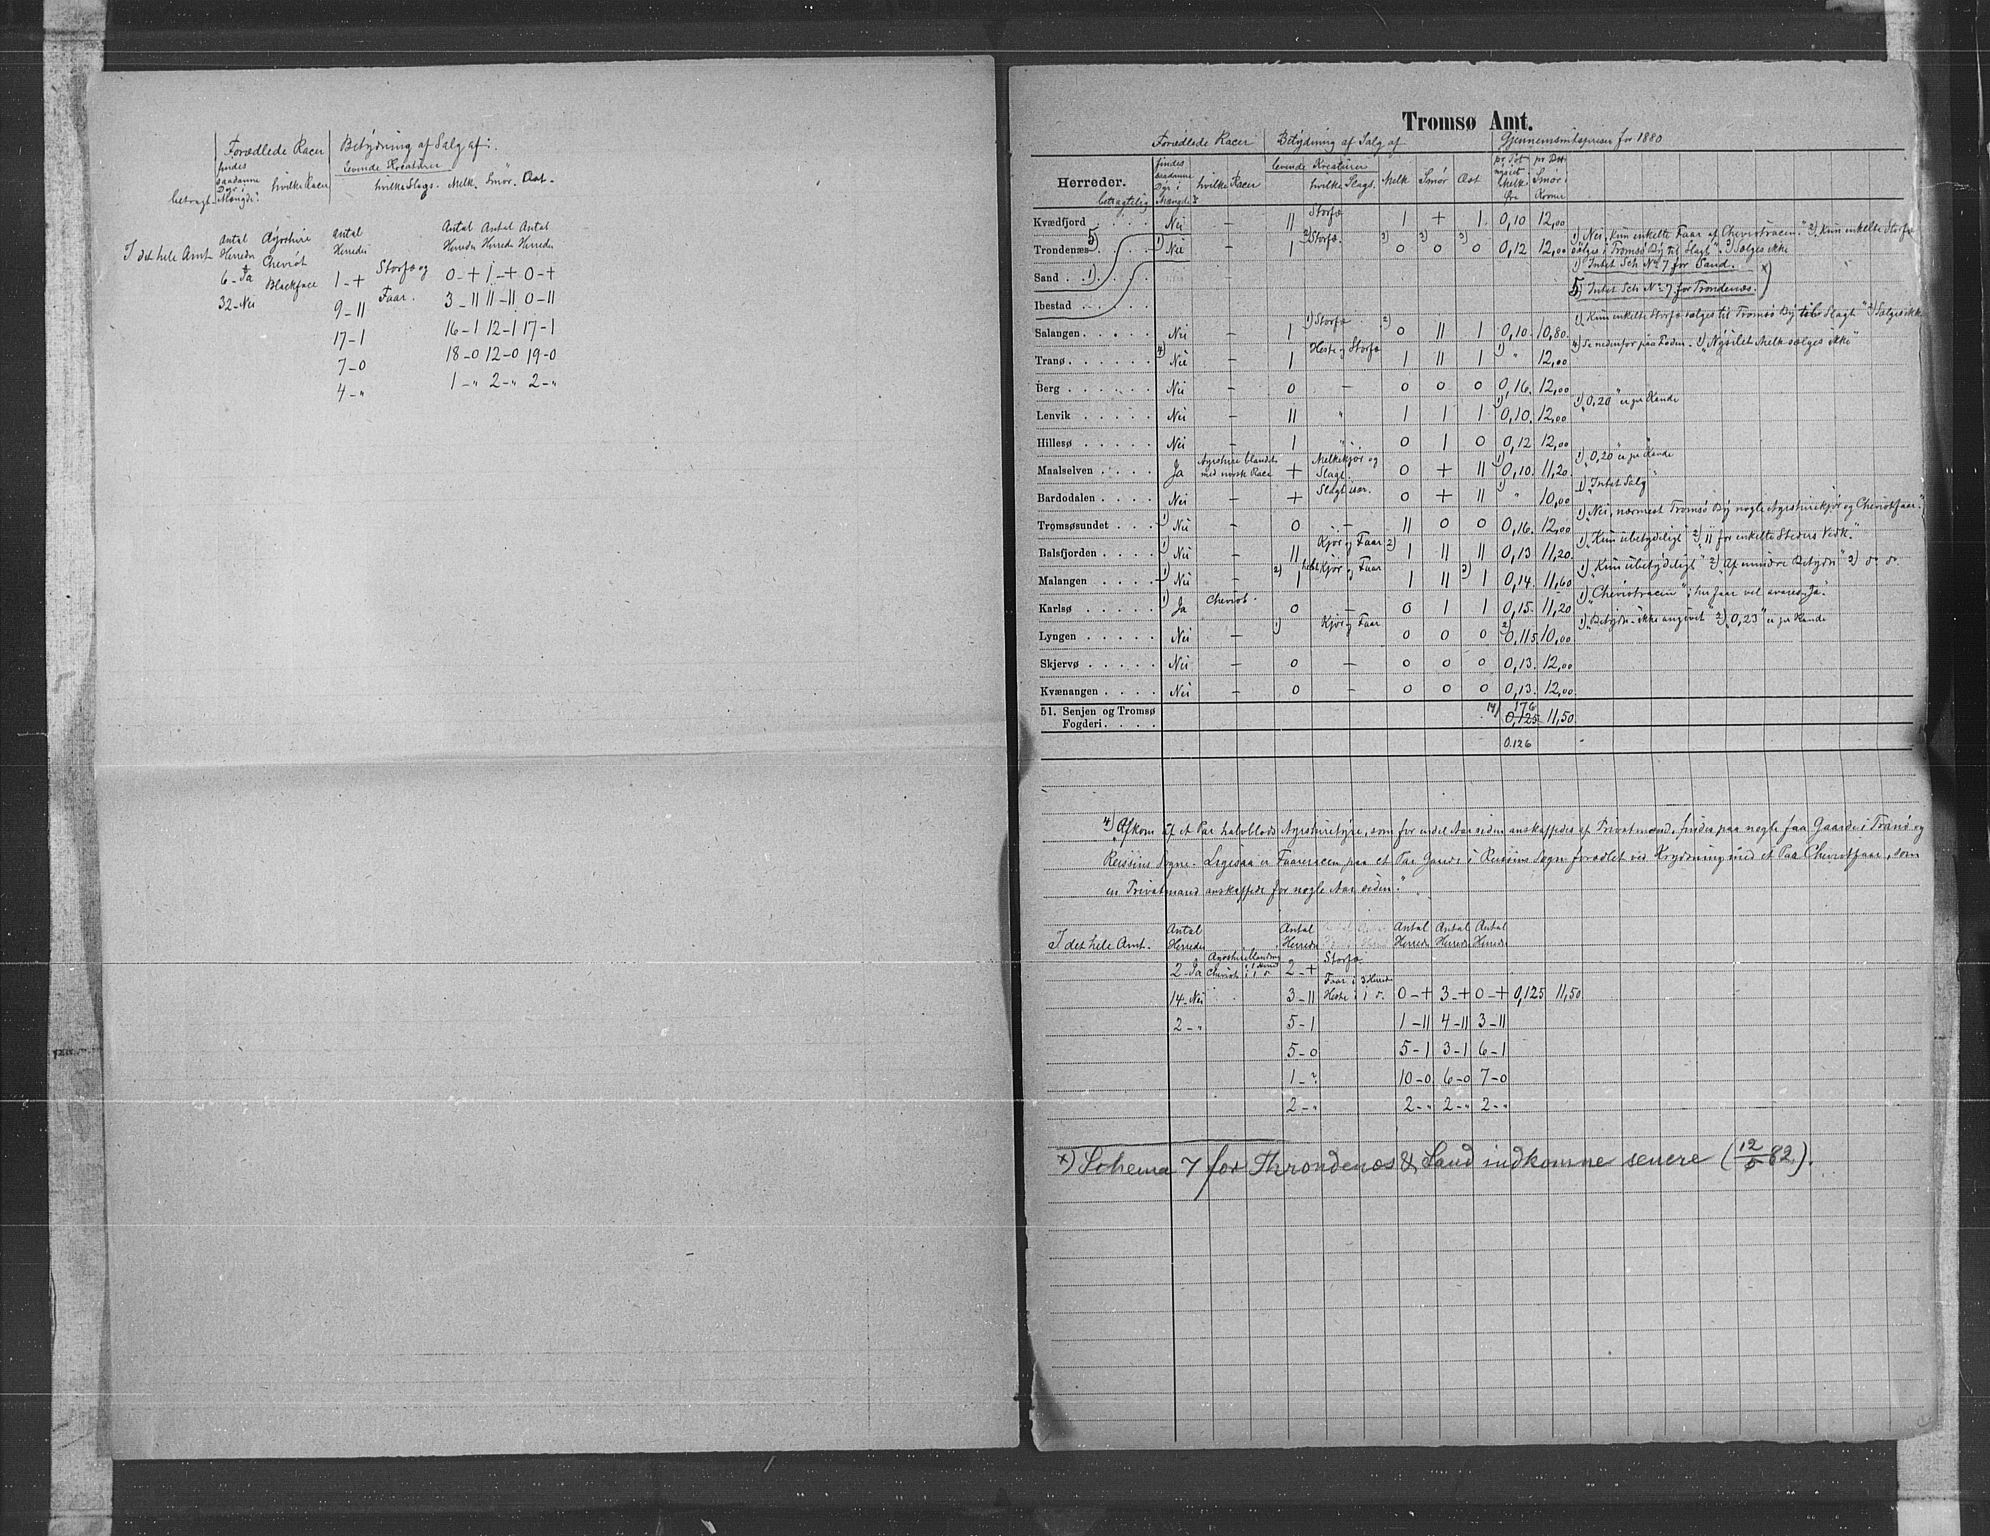 Forædlede Racer | Betydning af Salg af:
findes saadanne Dyr i betragt. Mængde? | hvilke Racer | Levende Kreaturer | hvilke Slags. | Melk. | Smør. | Ost.
I det hele Amt | Antal Herreder | Ayrshire | Antal Herreder | Antal Herreder | Antal Herreder | Antal Herreder
6 - Ja | Cheviot Blackface | 1 - + | Storfæ og Faar. | 0 - + | 1 - + | 0 - +
32 - Nei | 9 - || | 3 - || | 11 - || | 0 - ||
17 - | | 16 - | | 12 - | | 17 - |
7 - 0 | 18 - 0 | 12 - 0 | 19 - 0
4 - " | 1 - " | 2 - " | 2 - "
Tromsø Amt.
Forædlede Racer | Betydning af Salg af | Gjennemsnitspriser for 1880
Herreder. | findes saadanne Dyr i betragtelig Mængde? | hvilke Racer | Levende Kreaturer | hvilke Slags. | Melk | Smør | Ost | pr. Pot nysilet Melk. Øre | Smør Kroner
Kvædfjord | Nei | – | || | Storfæ | | | + | | | 0,10 | 12,00
Trondenæs 5) | 1) Nei | – | | | 2) Storfæ. | 3) 0 | 3) 0 | 3) 0 | 0,12 | 12,00 | 1) "Nei, Kun enkelte Faar af Cheviotracen." 2) "Kun enkelte Storfæ sælges i Tromsø By til Slagt". 3) Sælges ikke
Sand 1) | 1) Intet Sch. No. 7 for Sand. x)
Ibestad | 5) Intet Sch No. 7 for Trondenæs.
Salangen | Nei | – | | | 1) Storfæ | 2) 0 | || | | | 0,10. | 10,80. | 1) "Kun enkelte Storfæ sælges til Tromsø By til Slagt" 2) Sælges ikke
Tranø | 4) Nei | – | | | Heste og Storfæ | | | || | | | 1) " | 12,00 | 4) Se nedenfor paa Siden. 1) "Nysilet Melk sælges ikke"
Berg | Nei | – | 0 | – | 0 | 0 | 0 | 0,16. | 12,00
Lenvik | Nei | – | || | " | | | | | | | 1) 0,10. | 12,00 | 1) "0,20" er pr Kande
Hillesø | Nei | – | | | " | 0 | | | 0 | 0,12 | 12,00
Maalselven | Ja | Ayrshire blandet med norsk Race | + | Melkekjør og Slagt. | 0 | + | || | 1) 0,10. | 11,20. | 1) "0,20" er pr Kande
Bardodalen | Nei | – | + | Slagt | 0 | + | || | 1) " | 10,00 | 1) "Intet Salg"
Tromsøsundet | 1) Nei | – | 0 | – | || | 0 | 0 | 0,16. | 12,00 | 1) "Nei, nærmest Tromsø By nogle Ayrshirekjør og Cheviotfaar."
Balsfjorden | 1) Nei | – | || | Kjør og Faar | 2) | | || | || | 0,13. | 11,20. | 1) "Kun ubetydeligt" 2) "|| for enkelte Steders Vedk."
Malangen | 1) Nei | – | 2) | | helst Kjør og Faar | | | || | 3) | | 0,14. | 11,60 | 1) "Kun ubetydeligt" 2) "Af mindre Betydn" 3) do do
Karlsø | 1) Ja | Cheviot. | 0 | – | 0 | | | | | 0,15. | 11,20 | 1) "Cheviotracen"
Lyngen | Nei | – | 1) | Kjør og Faar | 0 | 0 | 0 | 2) 0,115 | 10,00 | 1) "Betydn. ikke angivet" 2) "0,23" er pr Kande
Skjervø | Nei | – | 0 | – | 0 | 0 | 0 | 0,13. | 12,00
Kvænangen | Nei | – | 0 | – | 0 | 0 | 0 | 0,13. | 12,00
51. Senjen og Tromsø Fogderi | 14/ 176 | 0,125 | 11,50
0.126
4) "Afkom af et Par halvblods Ayrshiretyre, som for endel Aar siden anskaffedes af Privatmænd, findes paa nogle faa Gaarde i Tranø og
Sogne. Ligesaa er Faareracen paa et Par Gaarde i Sogn forædlet ved Krydsning med et Par Cheviotfaar, som
en Privatmand anskaffede for nogle Aar siden."
I det hele Amt. | Antal Herreder | Antal Herreder | Antal Herreder | Antal Herreder | Antal Herreder
2 - Ja | Ayrshire Cheviot | 2 - + | Storfæ
14 - Nei | 3 - || | Faar i 3 Herreder Heste i 1 | 0 - + | 3 - + | 0 - + | 0,125 | 11,50
2 - " | 5 - | | 1 - || | 4 - || | 3 - ||
5 - 0 | 5 - | | 3 - | | 6 - |
1 - ? | 10 - 0 | 6 - 0 | 7 - 0
2 - " | 2 - " | 2 - " | 2 - "
x) Schema 7 for Throndenæs & Sand indkomne senere (12/5 82).